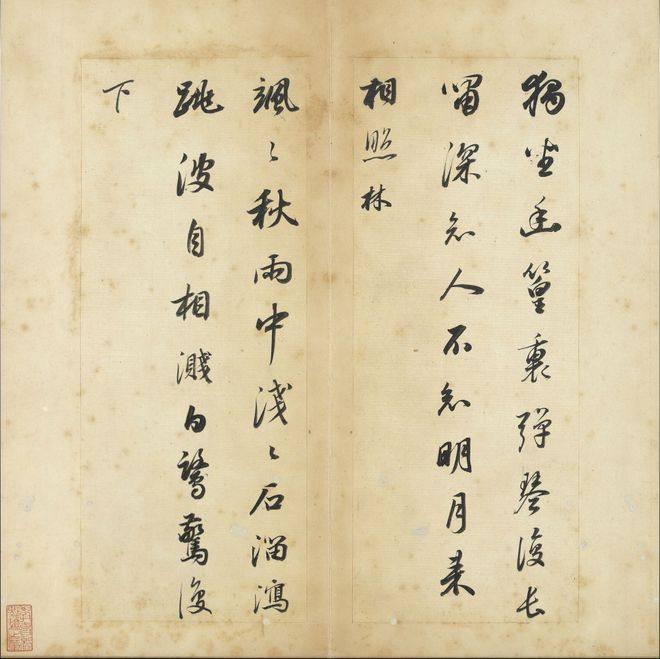 獨坐幽篁裏彈琴復長
嘯深知人不知明月來
相照林
颯〻秋雨中淺〻石溜瀉
跳波自相濺白鷺驚復
下